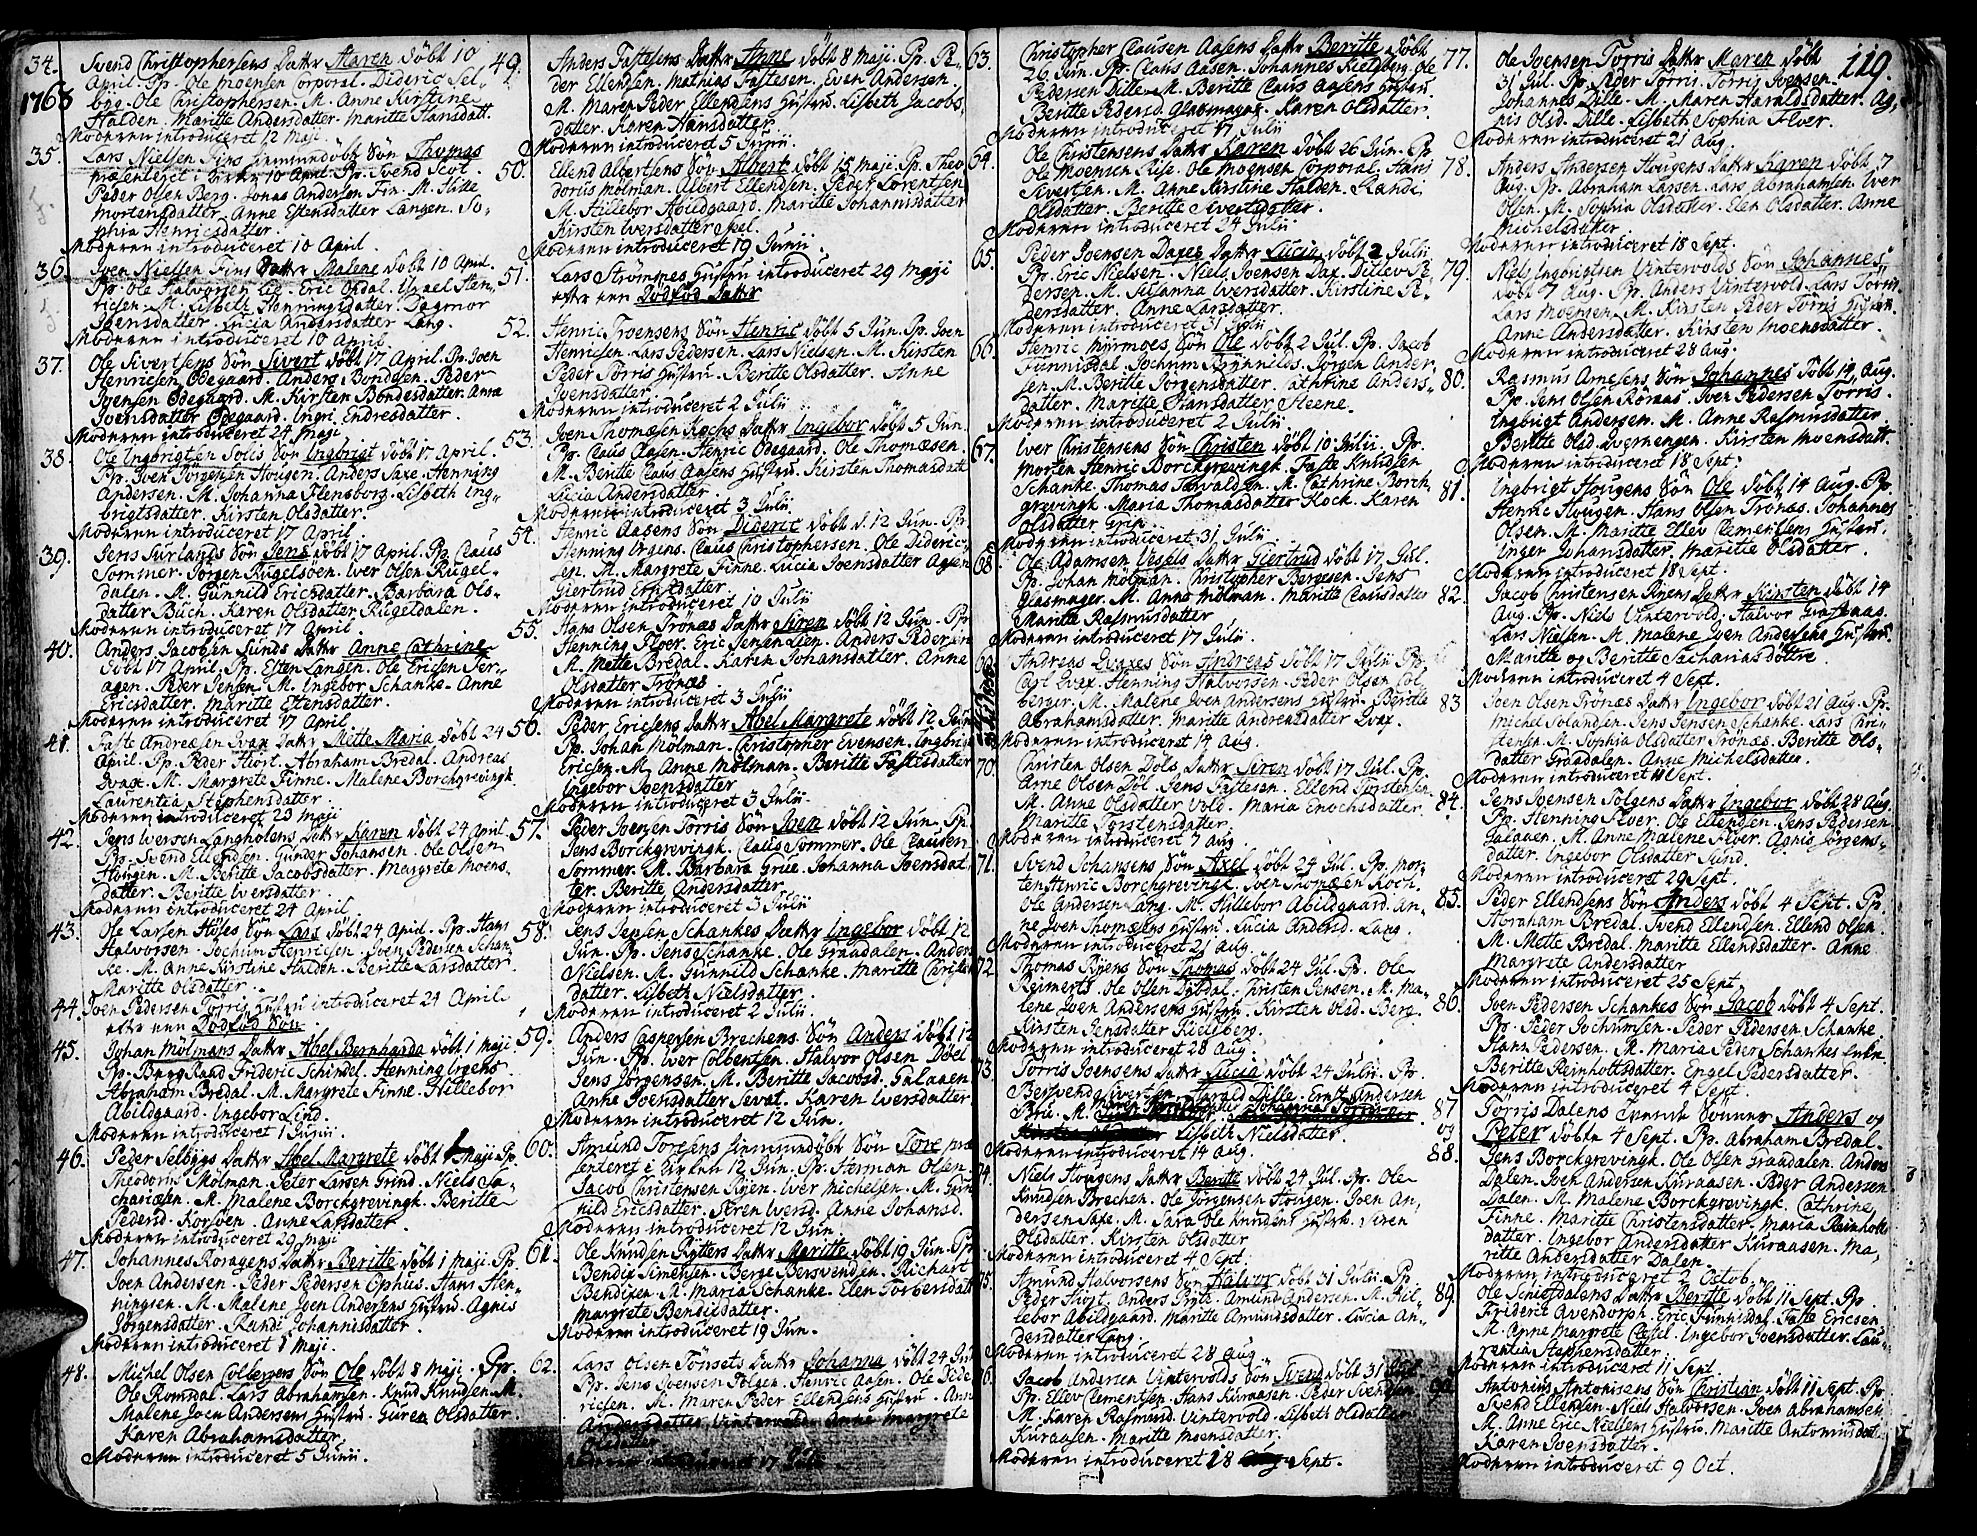 119.
1763
34. Svend Christophersens Datter Maren döbt 10
April. Pp. Ole Moensen Corporal. Dideric Sel-
byg. Ole Christophersen. M. Anne Kirstine
Halden. Maritte Andersdatter. Maritte Hansdatt.
Moderen introduceret 12 Maji.
35. Lars Nielsen Fins hiemmedöbt Sön Thomas
præsenteret i Kirken 10 April. Pp. Svend Scot.
Peder Olsen Berg. Jonas Andersen Fin. M. Hilde
Mortensdatter. Anne Estensdatter Langen. So-
phia Henricsdatter.
Moderen introduceret 10 April.
36. Joen Nielsen Fins Datter Malene döbt 10 April.
Pp. Ole Halvorsen Lie. Eric Opdal. Israel Hen-
ricsen. M. Lisbeth Henningsdatter. Dagmor
Joensdatter. Lucia Andersdatter Lang.
Moderen introduceret 10 April.
37. Ole Sivertsens Sön Sivert döbt 17 April. Pp. Joen
Henricsen Ödegaard. Anders Bondesen. Peder
Joensen Ödegaard. M. Kirsten Bondesdatter. Anna
Joensdatter Ödegaard. Ingri Endresdatter.
Moderen introduceret 24 Maji
38. Ole Ingbrigtsen Solis Sön Ingbrigt döbt 17 April.
Pp. Joen Jörgensen Hougen. Anders Saxe. Henning
Andersen. M. Johanna Flensborg. Lisbeth Ing-
brigtsdatter. Kirsten Olsdatter.
Moderen introduceret 17 April
39. Jens Aurlands Sön Jens döbt 17 April. Pp. Claus
Sommer. Jörgen Rugelsöen. Iver Olsen Rugel-
dalen. M. Gunnild Ericsdatter. Barbara Ols-
datter Buch. Karen Olsdatter Rugeldalen.
Moderen introduceret 17 April.
40. Anders Jacobsen Lunds Datter Anne Cathrine
döbt 17 April. Pp. Esten Langen. Ole Ericsen Fer-
agen. Peder Jensen. M. Ingebor Schanke. Anne
Ericsdatter. Maritte Estensdatter.
Moderen introduceret 17 April
41. Faste Andreæsen Svax Datter Mitte Maria döbt 24
April. Pp. Peder Hiort. Abraham Bredal. Andreas
Svax. M. Margrete Finne. Malene Borchgrevingk.
Laurentia Stephensdatter.
Moderen introduceret 23 Maji
42. Jens Iversen Langholens Datter Karen döbt 24 April.
Pp. Svend Ellendsen. Gunder Johansen. Ole Olsen
Hougen. M. Beritte Jacobsdatter. Margrete Moens-
datter. Beritte Iversdatter.
Moderen introduceret 24 April
43. Ole Larsen Höses Sön Lars döbt 24 April. Pp. Hans
Halvorsen. Jochum Henricsen. Joen Pedersen Schan-
ke. M. Anne Kirstine Halden. Beritte Larsdatter.
Maritte Olsdatter.
44. Joen Pedersen Törris Hustru introduceret 24 April
efter een Dödföd Sön.
45. Johan Mölmans Datter Abel Bernharda döbt 1 Maji
Pp. Borg Raad Frideric Schindel. Henning Irgens
Abraham Bredal. M. Margrete Finne. Hillebor
Abildgaard. Ingebor Lind.
Moderen introduceret 1 Junii.
46. Peder Selbygs Datter Abel Margrete döbt 1 Maji Pp.
Theodorus Mölman. Peter Larsen Grind. Niels Za-
chariæsen. M. Malene Borckgrevingk. Beritte
Pedersd. Korsöen. Anne Larsdatter.
Moderen introduceret 29 Maji
47. Johannes Roragens Datter Beritte döbt 1 Maji. Pp.
Joen Andersen. Peder Pedersen Ophus. Hans Hen-
ningsen. M. Malene Joen Andersens Hustru. Agnis
Jörgensdatter. Randi Johannisdatter.
Moderen introduceret 1 Maji.
48. Michel Olsen Colbergs Sön Ole döbt 8 Maji. Pp.
Ole Romdal. Lars Abrahamsen. Knud Knudsen. M.
Malene Joen Andersens Hustru. Guren Olsdatter.
Karen Abrahamsdatter.
Moderen introduceret 5 Junii.
49. Anders Fastesens Datter Anne döbt 8 Maji. Pp. Pe-
der Ellendsen. Mathias Fastesen. Even Andersen.
M. Maren Peder Ellendsens Hustru. Lisbeth Jacobs-
datter. Karen Hansdatter.
Moderen introduceret 5 Junii.
50. Ellend Albertsens Sön Albert döbt 15 Maji. Pp. Theo
dorus Mölman. Albert Ellendsen. Peder Lorentsen
M. Hillebor Abildgaard. Maritte Johannisdatter
Kirsten Iversdatter Siel.
Moderen introduceret 19 Junii
51. Lars Strömmes Hustru introduceret 29 Maji
efter een Dödföd Datter
52. Henric Troensens Sön Henric döbt 5 Jun. Pp. Joen
Henricsen. Lars Pedersen. Lars Nielsen. M. Kirsten
Peder Törris Hustru. Beritte Olsdatter. Anne
Joensdatter.
Moderen introduceret 2 Julii
53. Joen Thomæsen Kochs Datter Ingebor döbt 5 Jun.
Pp. Claus Aasen. Henric Ödegaard. Ole Thomæsen.
M. Beritte Claus Aasens Hustru. Kirsten Thomasdatt
Lucia Andersdatter.
Moderen introduceret 3 Julii
54. Henric Aasens Sön Dideric döbt d. 12 Jun. Pp.
Henning Irgens. Claus Christophersen. Ole Dideric-
sen. M. Margrete Finne. Lucia Joensdatter Aasen
Giertrud Ericsdatter.
Moderen introduceret 10 Julii
55. Hans Olsen Trönæs Datter Siren döbt 12 Jun. Pp.
Henning Floer. Eric Jensen. Anders Pedersen
M. Mette Bredal. Karen Johansdatter. Anne
Olsdatter Trönæs.
Moderen introduceret 3 Julii
56. Peder Ericsens Datter Abel Margrete döbt 12 Jun
Pp. Johan Mölman. Christopher Evensen. Ingbrigt
Ericsen. M. Anne Mölman. Beritte Fastesdatter
Ingebor Joensdatter
Moderen introduceret 3 Julii
57. Peder Joensen Törris Sön Joen döbt 12 Jun. Pp.
Jens Borckgrevingk. Claus Sommer. Ole Clausen
Sommer. M. Barbara Grue. Johanna Joensdat-
ter. Beritte Andersdatter
Moderen introduceret 3 Julii
58. Jens Jensen Schankes Datter Ingebor döbt 12
Jun. Pp. Jens Schanke. Ole Graadalen. Anders
Nielsen. M. Gunnild Schanke. Maritte Christens
datter. Lisbeth Nielsdatter.
Moderen introduceret 2 Julii.
59. Anders Caspersen Brechens Sön Anders döbt 12
Jun. Pp. Iver Colbentsen. Halvor Olsen Döel
Jens Jörgensen. M. Beritte Jacobsd. Galaaen
Anne Joensdatter Sevat. Karen Iversdatter
Moderen introduceret 12 Jun.
60. Amund Toresens hiemmedöbt Sön Tore præ
senteret i Kirken 12 Jun. Pp. Herman Olsen.
Jacob Christensen Ryen. Iver Michelsen. M. Gun
nild Ericsdatter. Siren Iversd. Anne Johansd.
Moderen introduceret 12 Jun.
61. Ole Knudsen Rytters Datter Maritte döbt 19 Jun. Pp.
Bendix Simensen. Berge Bersvendsen. Richart
Bendixen. M. Maria Schanke. Elen Torbersdatt
Margrete Bendixdatter.
Moderen introduceret 19 Jun.
62. Lars Olsen Tönsets Datter Johanna döbt 24 Jun
Pp. Jens Joensen Tolgen. Henric Aasen. Ole Pede
ricsen. M. Maren Peder Ellendsens Hustru. Ann
Andersdatter Vintervold. Anne Margrete
Olsdatter
Moderen introduceret 17 Julii
63. Christopher Clausen Aasens Datter Beritte döbt
26 Jun. Pp. Claus Aasen. Johannes Kieldberg. Ole
Pedersen Dille. M. Beritte Claus Aasens Hustru.
Beritte Pedersd. Glasmager. Karen Olsdatter.
Moderen introduceret 17 Julii
64. Ole Christensens Datter Karen döbt 26 Jun. Pp.
Ole Moensen Riise. Ole Moensen Corporal. Hans
Sivertsen. M. Anne Kirstine Halden. Randi
Olsdatter. Beritte Sivertsdatter.
Moderen introduceret 24 Julii
65. Peder Joensen Daxes Datter Lucia döbt 2 Julii
Pp. Eric Nielsen. Niels Joensen Dax. Ditlev Pe-
dersen. M. Susanna Iversdatter. Kirstine Pe-
dersdatter. Anne Larsdatter.
Moderen introduceret 31 Julii
66. Henric Myrmoes Sön Ole döbt 2 Jul. Pp. Jacob
Funnisdal. Jochum Brynnilds. Jörgen Ander-
sen. M. Beritte Jörgensdatter. Cathrine Anders-
datter. Maritte Hansdatter Steene.
Moderen introduceret 2 Julii
67. Iver Christensens Sön Christen döbt 10 Julii. Pp.
Morten Henric Borckgrevingk. Faste Knudsen
Schanke. Thomas Torvaldsen. M. Cathrine Borch
grevingk. Maria Thomasdatter Kock. Karen
Olsdatter Grin.
Moderen introduceret 31 Julii.
68. Ole Adamsen Vesels Datter Giertrud döbt 17 Jul.
Pp. Johan Mölman. Christopher Bergesen. Jens
Glasmager. M. Anne Mölman. Maritte Clausdatter
Maritte Rasmusdatter
Moderen introduceret 17 Julii.
69. Andreas Svaxes Sön Andreas döbt 17 Julii Pp.
Carl Svax. Henning Halvorsen. Peder Olsen Col-
berger. M. Malene Joen Andersens Hustru. Beritte
Abrahamsdatter. Maritte Andreasdatter Svax.
Moderen introduceret 14 Aug.
70. Christen Olsen Döls Datter Siren döbt 17 Jul. Pp.
Arne Olsen Döl. Jens Fastesen. Ellend Torstensen
M. Anne Olsdatter Vold. Maria Enochsdatter.
Maritte Torstensdatter
Moderen introduceret 7 Aug.
71. Svend Johansens Sön Axel döbt 24 Jul. Pp. Mor-
ten Henric Borchgrevingk. Joen Thomæsen Koch.
Ole Andersen Lang. M. Hillebor Abildgaard. An-
ne Joen Thomæsens Hustru. Lucia Andersd. Lang.
Moderen introduceret 21 Aug.
72. Thomas Ryens Sön Thomas döbt 24 Jul. Pp. Ole
Reimerts. Ole Olsen Dybdal. Christen Jensen. M. Ma-
lene Joen Andersens Hustru. Kirsten Olsd. Berg.
Kirsten Jensdatter Kieldberg.
Moderen introduceret 28 Aug.
73. Törris Joensens Datter Lucia döbt 24 Julii. Pp.
Bersvend Sivertsen. Harald Dille. Ernst Andersen
Brie. M. Lisbeth Nielsdatter.
Moderen introduceret 14 Aug.
74. Niels Hougens Datter Beritte döbt 24 Jul. Pp. Ole
Knudsen Brechen. Ole Jörgensen Hougen. Joen An-
dersen Saxe. M. Sara Ole Knudsens Hustru. Siren
Olsdatter. Kirsten Olsdatter
Moderen introduceret 4 Sept.
75. Amund Halvorsens Sön Halvor döbt 31 Julii. Pp.
Peder Hiort. Anders Prytz. Amund Andersen. M. Hil-
lebor Abildgaard. Maritte Amundsdatter. Lucia An-
dersdatter Lang.
Moderen introduceret 28 Aug
76. Jacob Andersen Vintervolds Sön Svend döbt 31 Jul
Pp. Ellev Clementsen. Hans Kuraasen. Peder Svendsen
M. Karen Rasmusd. Vintervold. Lisbeth Olsdatter
Kuraasen. Maritte Moensdatter.
Moderen introduceret 18 Sept.
77. Ole Joensen Törris Datter Maren döbt
31 Jul. Pp. Peder Törris. Törris Joensen.
Johannes Dille. M. Maren Haraldsdatter. Ag-
nis Olsd. Dille. Lisbeth Sophia Floer.
Moderen introduceret 21 Aug.
78. Anders Andersen Hougens Datter Karen döbt 7
Aug. Pp. Abraham Larsen. Lars Abrahamsen. Iver
Olsen. M. Sophia Olsdatter. Elen Olsdatter. Anne
Michelsdatter
Moderen introduceret 18 Sept.
79. Niels Ingbrigtsen Vintervolds Sön Johannes
döbt 7 Aug. Pp. Anders Vintervold. Lars Törris.
Lars Moensen. M. Kirsten Peder Törris Hustru.
Anne Andersdatter. Kirsten Moensdatter.
Moderen introduceret 28 Aug.
80. Rasmus Arnesens Sön Johannes döbt 14 Aug.
Pp. Jens Olsen Roraas. Joen Pedersen Törris.
Ingbrigt Andersen. M. Anne Rasmusdatter
Beritte Olsd. Evernengen. Kirsten Moensdatt.
Moderen introduceret 18 Sept.
81. Ingbrigt Hougens Sön Ole döbt 14 Aug. Pp.
Henric Hougen. Hans Olsen Trönæs. Johannes
Olsen. M. Maritte Ellev Clementsens Hustru.
Inger Johansdatter. Maritte Olsdatter.
Moderen introduceret 18 Sept.
82. Jacob Christensen Ryens Datter Kirsten döbt 14
Aug. Pp. Niels Vintervold. Halvor Graftaas.
Lars Nielsen. M. Malene Joen Andersens Hustru.
Maritte og Beritte Zachariasdöttre.
Moderen introduceret 4 Sept.
83. Joen Olsen Trönæs Datter Ingebor döbt 21 Aug. Pp.
Michel Solandsen. Jens Jensen Schanke. Lars Chri-
stensen. M. Sophia Olsdatter Trönæs. Beritte Ols-
datter Graadalen. Anne Michelsdatter.
Moderen introduceret 11 Sept.
84. Jens Joensen Tolgens Datter Ingebor döbt 28 Aug.
Pp. Henning Floer. Ole Ellendsen. Jens Pedersen
Galaaen. M. Anne Malene Floer. Agnis Jörgens-
datter. Ingebor Olsdatter Sund.
Moderen introduceret 29 Sept.
85. Peder Ellendsens Sön Anders döbt 4 Sept. Pp.
Abraham Bredal. Svend Ellendsen. Ellend Olsen
M. Mette Bredal. Maritte Ellendsdatter. Anne
Margrete Andersdatter
Moderen introduceret 25 Sept
86. Joen Pedersen Schankes Sön Jacob döbt 4 Sept.
Pp. Peder Jochumsen. Peder Pedersen Schanke
Hans Pedersen. M. Maria Peder Schankes Enke.
Beritte Reinholtsdatter. Engel Pedersdatter.
Moderen introduceret 4 Sept.
87 og 88. Törris Dalens Tvende Sönner Anders og
Peter döbte 4 Sept. Pp. Abraham Bredal.
Jens Borckgrevingk. Ole Olsen Graadalen. Anders
Dalen. Joen Andersen Kuraasen. Peder Andersen
Dalen. M. Malene Borckgrevingk. Cathrine
Finne. Maritte Christensdatter. Maria Reinholts
datter. Ingebor Andersdatter Kuraasen. Ma-
ritte Andersdatter Dalen.
Moderen introduceret 2 Octob.
89. Ole Schiefdalens Datter Beritte döbt 11 Sept. Pp.
Frideric Avendorph. Eric Funnisdal. Faste Ericsen
M. Anne Margrete Castel. Ingebor Joensdatter. Lau-
rentia Stephensdatter.
Moderen introduceret 11 Sept.
90. Antonius Antonisens Sön Christian döbt 11 Sept. Pp.
Svend Ellendsen. Niels Halvorsen. Joen Abrahamsen
M. Anne Eric Nielsens Hustru. Maritte Antonisdat.
Karen Joensdatter.
Moderen introduceret 9 Oct.